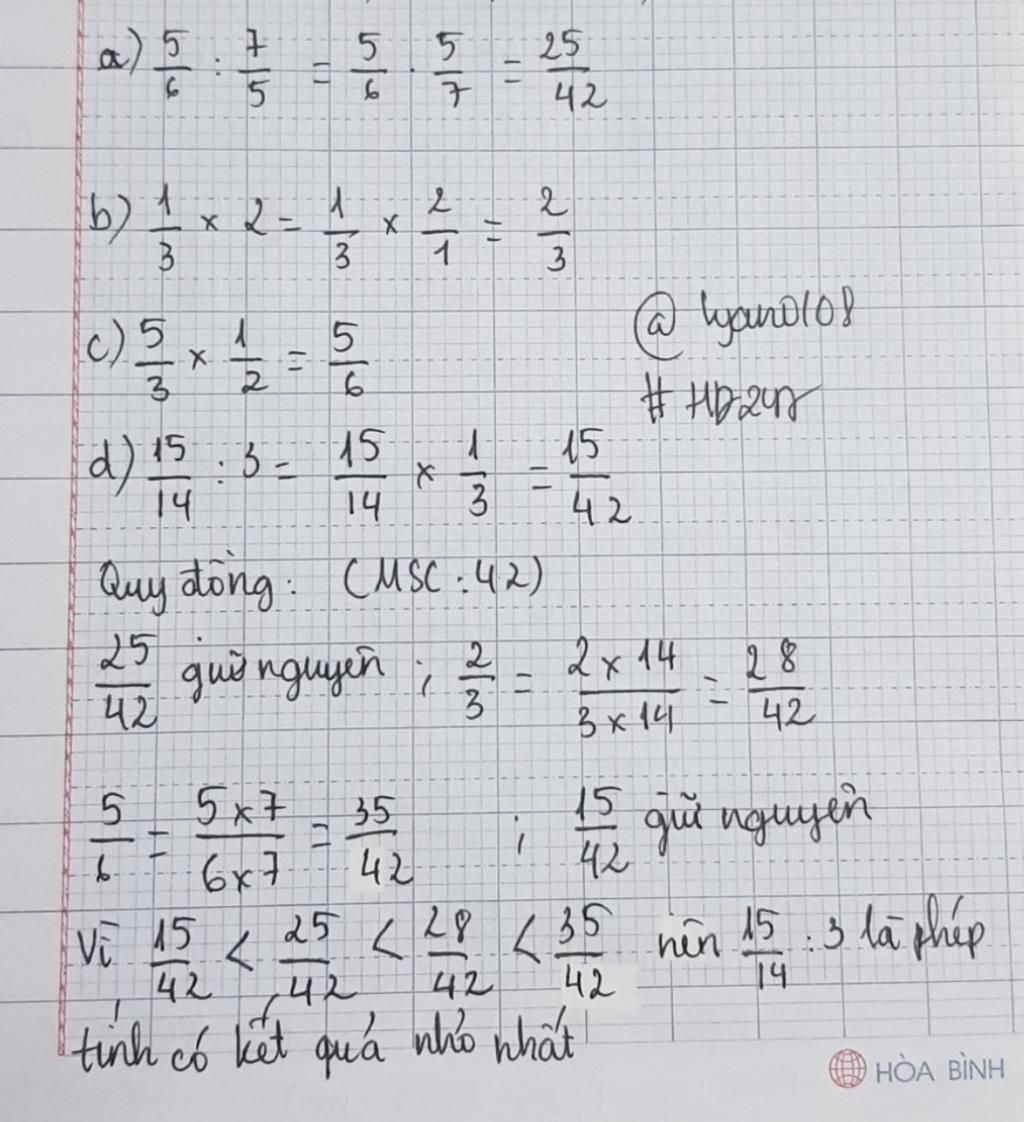 a) 5/6 : 7/5 = 5/6 . 5/7 = 25/42
b) 1/3 × 2 = 1/3 × 2/1 = 2/3
c) 5/3 × 1/2 = 5/6
@
#
d) 15/14 : 3 = 15/14 × 1/3 = 15/42
Quy đồng: (MSC : 42)
25/42 giữ nguyên ; 2/3 = 2 × 14/3 × 14 = 28/42
5/6 = 5 × 7/6 × 7 = 35/42 ; 15/42 giữ nguyên
Vì 15/42 < 25/42 < 28/42 < 35/42 nên 15/14 : 3 là phép
tính có kết quả nhỏ nhất
HÒA BÌNH